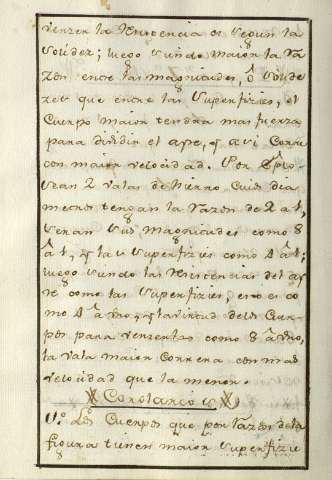 venzer la Resistencia es segun la
solidez; luego siendo maior la ra-
zon entre las magnitudes, ô solide
zes que entre las superfizies, el
Cuerpo maior tendra mas fuerza
para dividir el ayre, y asi Corre
con maior velozidad. Por
sean 2 valas de hierro, cuios dia
metros tengan la razon de 2 a 1,
seran sus magnitudes como 8
â 1, y las superfizies como 4 â 1;
luego siendo las Resistencias del ay
re como las superfizies, esto es co
mo 4 â uno, y la virtud de los Cuer
pos para venzerlas como 8 â uno,
la vala maior Correra con mas
velozidad que la menor.
Corolarios
1º Los Cuerpos que por razon de la
figura tienen maior superfizie